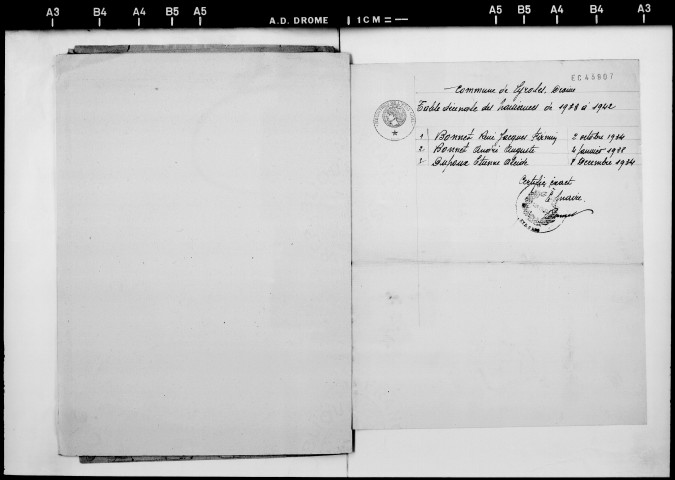 A3 B4 A4 B5 A5 A.D. DROME 1CM A5 B5 A4 B4 A3
EC45907
Commune de Eyroles. Drome
Table décennale des Naissances de 1933 à 1942
1 Bonnet René Jacques Firmin 2 octobre 1934
2 Bonnet André Auguste 4 Janvier 1938
3 Dupoux Etienne 8 Decembre 1934
Certifié exact
Le Maire